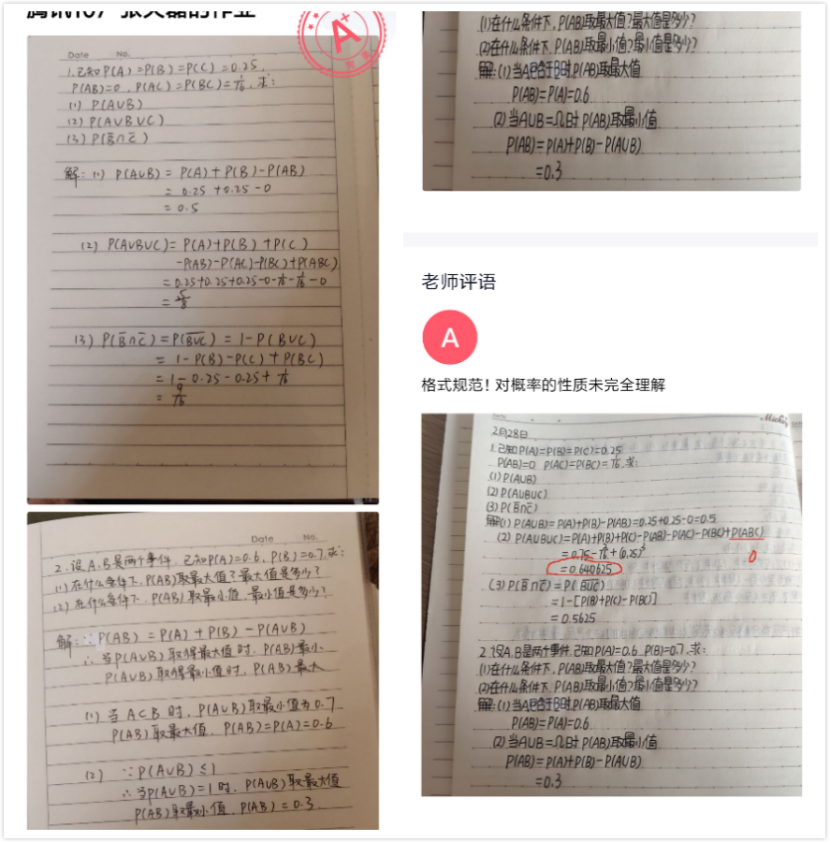 A+
Date No.
1.已知P(A)=P(B)=P(C)=0.25,
P(AB)=0, P(AC)=P(BC)=1/16, 求:
(1) P(A∪B)
(2) P(A∪B∪C)
(3) P(B̄∩C̄)
解: (1) P(A∪B) = P(A)+P(B)-P(AB)
= 0.25+0.25-0
= 0.5
(2) P(A∪B∪C)= P(A)+P(B)+P(C)
-P(AB)-P(AC)-P(BC)+P(ABC)
= 0.25+0.25+0.25-0-1/16-1/16-0
(3) P(B̄∩C̄)=P(B∪C) = 1-P(B∪C)
= 1-P(B)-P(C)+P(BC)
= 1-0.25-0.25+1/16
= 9/16
Date No.
2.设A.B是两个事件,已知P(A)=0.6, P(B)=0.7,求:
(1)在什么条件下,P(AB)取最大值?最大值是多少?
(2)在什么条件下,P(AB)取最小值,最小值是多少?
解: ∵P(AB) = P(A)+P(B)-P(A∪B)
∴当P(A∪B)取得最大值时,P(AB)最小.
P(A∪B)取得最小值时,P(AB)最大
(1) 当A⊂B时,P(A∪B)取最小值为0.7
P(AB)取最大值, P(AB)=P(A)=0.6
(2) ∵P(A∪B)≤1
∴当P(A∪B)=1时,P(A∪B)取最大值
P(AB)取最小值,P(AB)=0.3.
(1)在什么条件下,P(AB)取最大值?最大值是多少?
(2)在什么条件下,P(AB)取最小值?最小值是多少?
解:(1)当A包含于B时,P(AB)取最大值
P(AB)=P(A)=0.6
(2)当A∪B=Ω时P(AB)取最小值
P(AB)=P(A)+P(B)-P(A∪B)
=0.3
老师评语
A
格式规范！对概率的性质未完全理解
2月28日
1.已知P(A)=P(B)=P(C)=0.25
P(AB)=0 P(AC)=P(BC)=1/16,求:
(1)P(A∪B)
(2)P(A∪B∪C)
(3)P(B̄∩C̄)
解(1)P(A∪B)=P(A)+P(B)-P(AB)=0.25+0.25-0=0.5
(2)P(A∪B∪C)=P(A)+P(B)+P(C)-P(AB)-P(AC)-P(BC)+P(ABC)
=0.75-1/8+(0.25)³
0
=0.640625
(3)P(B̄∩C̄)=P(B∪C)
=1-[P(B)+P(C)-P(BC)]
=0.5625
2.设A.B是两个事件,已知P(A)=0.6,P(B)=0.7,求:
(1)在什么条件下,P(AB)取最大值?最大值是多少?
(2)在什么条件下,P(AB)取最小值?最小值是多少?
解:(1)当A包含于B时,P(AB)取最大值
P(AB)=P(A)=0.6
(2)当A∪B=Ω时P(AB)取最小值
P(AB)=P(A)+P(B)-P(A∪B)
=0.3